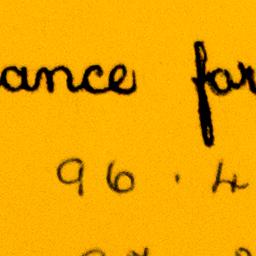 ance far
96.4